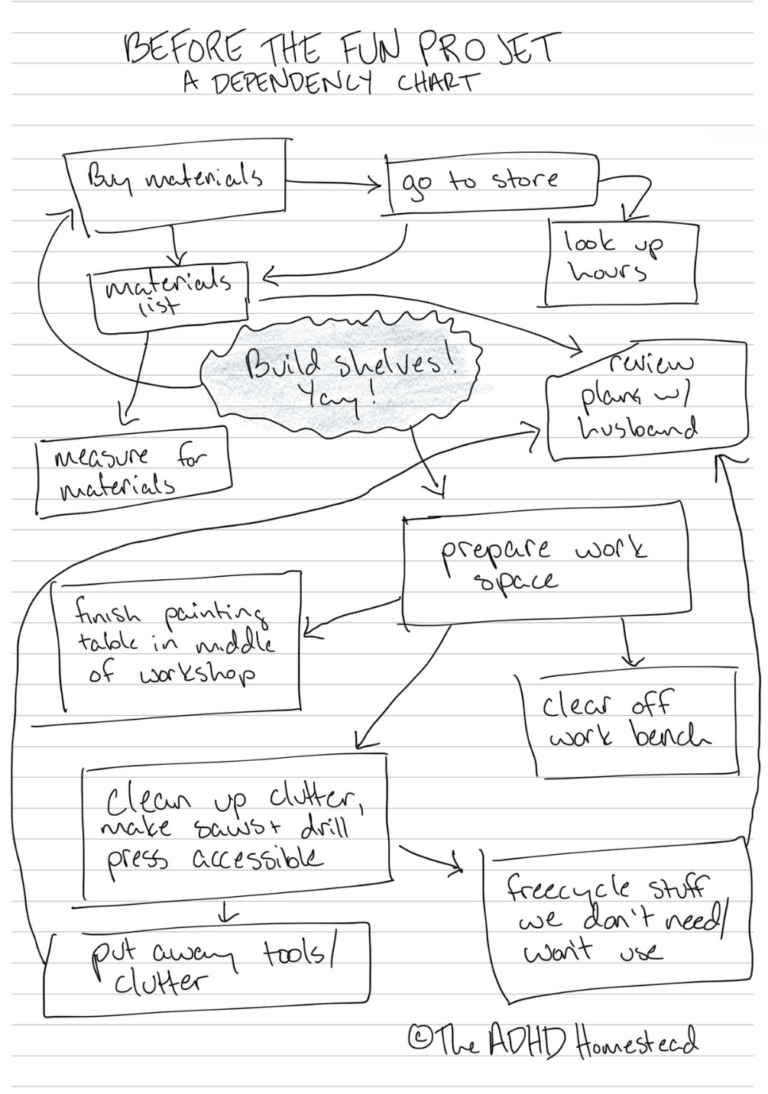 BEFORE THE FUN PROJET
A DEPENDENCY CHART
Buy materials
go to store
look up
hours
materials
list
Build shelves!
Yay!
review
plans w/
husband
measure for
materials
prepare work
space
finish painting
table in middle
of workshop
clear off
work bench
clean up clutter,
make saws + drill
press accessible
freecycle stuff
we don't need/
won't use
put away tools/
clutter
©The ADHD Homestead